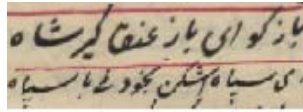 باز گو ای باز عنقا گیر شاه
ای سپاه اشکن بخود نی با سپاه